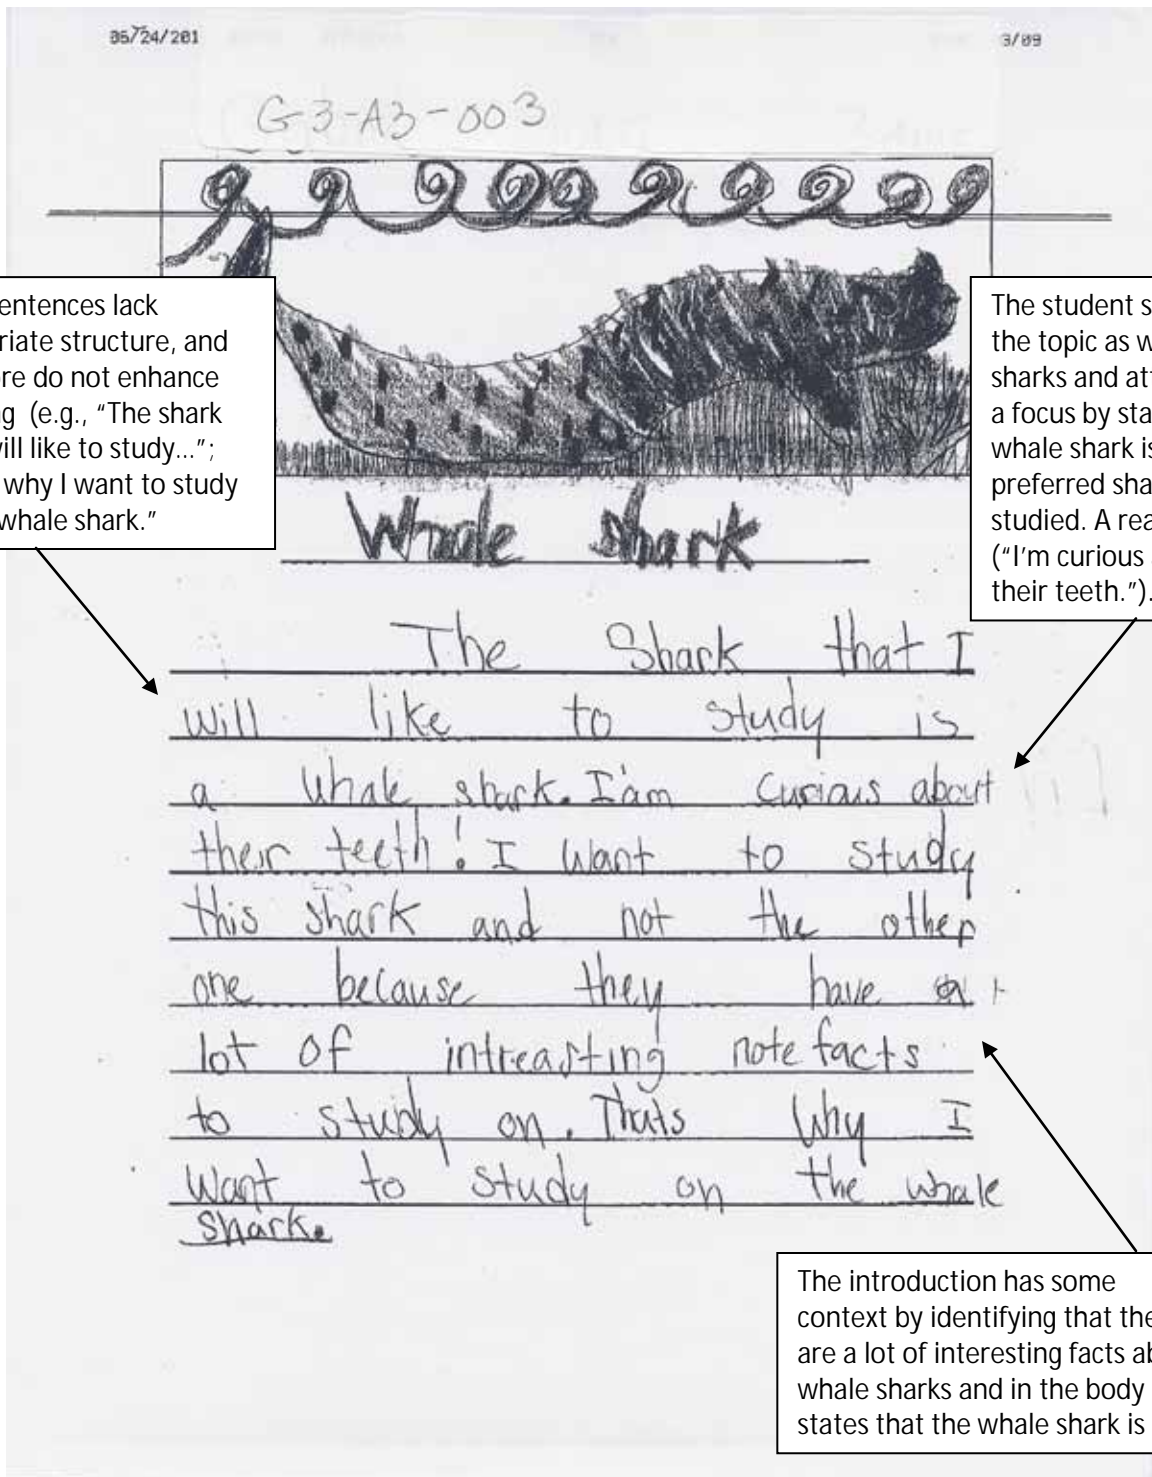 05/24/201
3/09
G3-A3-003
entences lack
riate structure, and
ore do not enhance
g (e.g., "The shark
will like to study...";
why I want to study
whale shark."
The student s
the topic as w
sharks and att
a focus by sta
whale shark is
preferred sha
studied. A rea
("I'm curious
their teeth.").
Whale shark
The Shark that I
will like to study is
a whale shark. I'am curious about
their teeth! I want to study
this shark and not the other
one because they have a
lot of intreasting note facts
to study on. Thats why I
want to study on the whale
shark.
The introduction has some
context by identifying that the
are a lot of interesting facts ab
whale sharks and in the body
states that the whale shark is